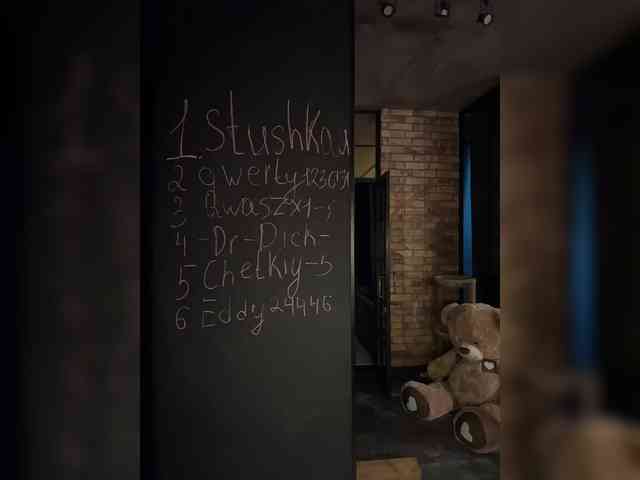 1 Stushka
2 qwerty
3 Qwaszx1-5
4 -Dr-Dich-
5 Chetkiy-5
6 Eddy24446